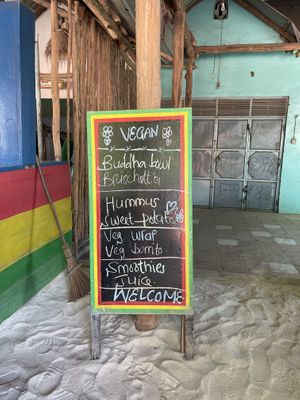 VEGAN
Buddha bowl
Bruschetta
Hummus
Sweet potatoes
Veg wrap
Veg borito
Smoothies
Juice
WELCOME